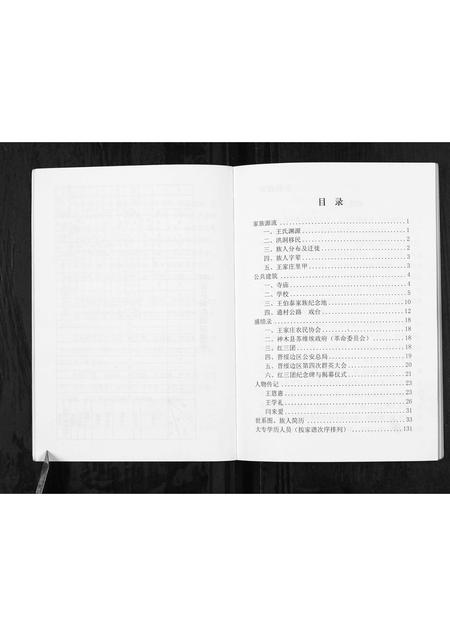 目 录
家族源流 1
一、王氏渊源 1
二、洪洞移民 2
三、族人分布及迁徙 2
四、族人字辈 3
五、王家庄里甲 3
公共建筑 4
一、寺庙 4
二、学校 5
三、王伯泰家族纪念地 10
四、通村公路 戏台 12
盛绩录 18
一、王家庄农民协会 18
二、神木县苏维埃政府（革命委员会） 18
三、红三团 18
四、晋绥边区公安总局 19
五、晋绥边区第四次群英大会 20
六、红三团纪念碑与揭幕仪式 21
人物传记 23
王恩惠 23
王学礼 26
闫来爱 31
世系图、族人简历 33
大专学历人员（按家谱次序排列） 131